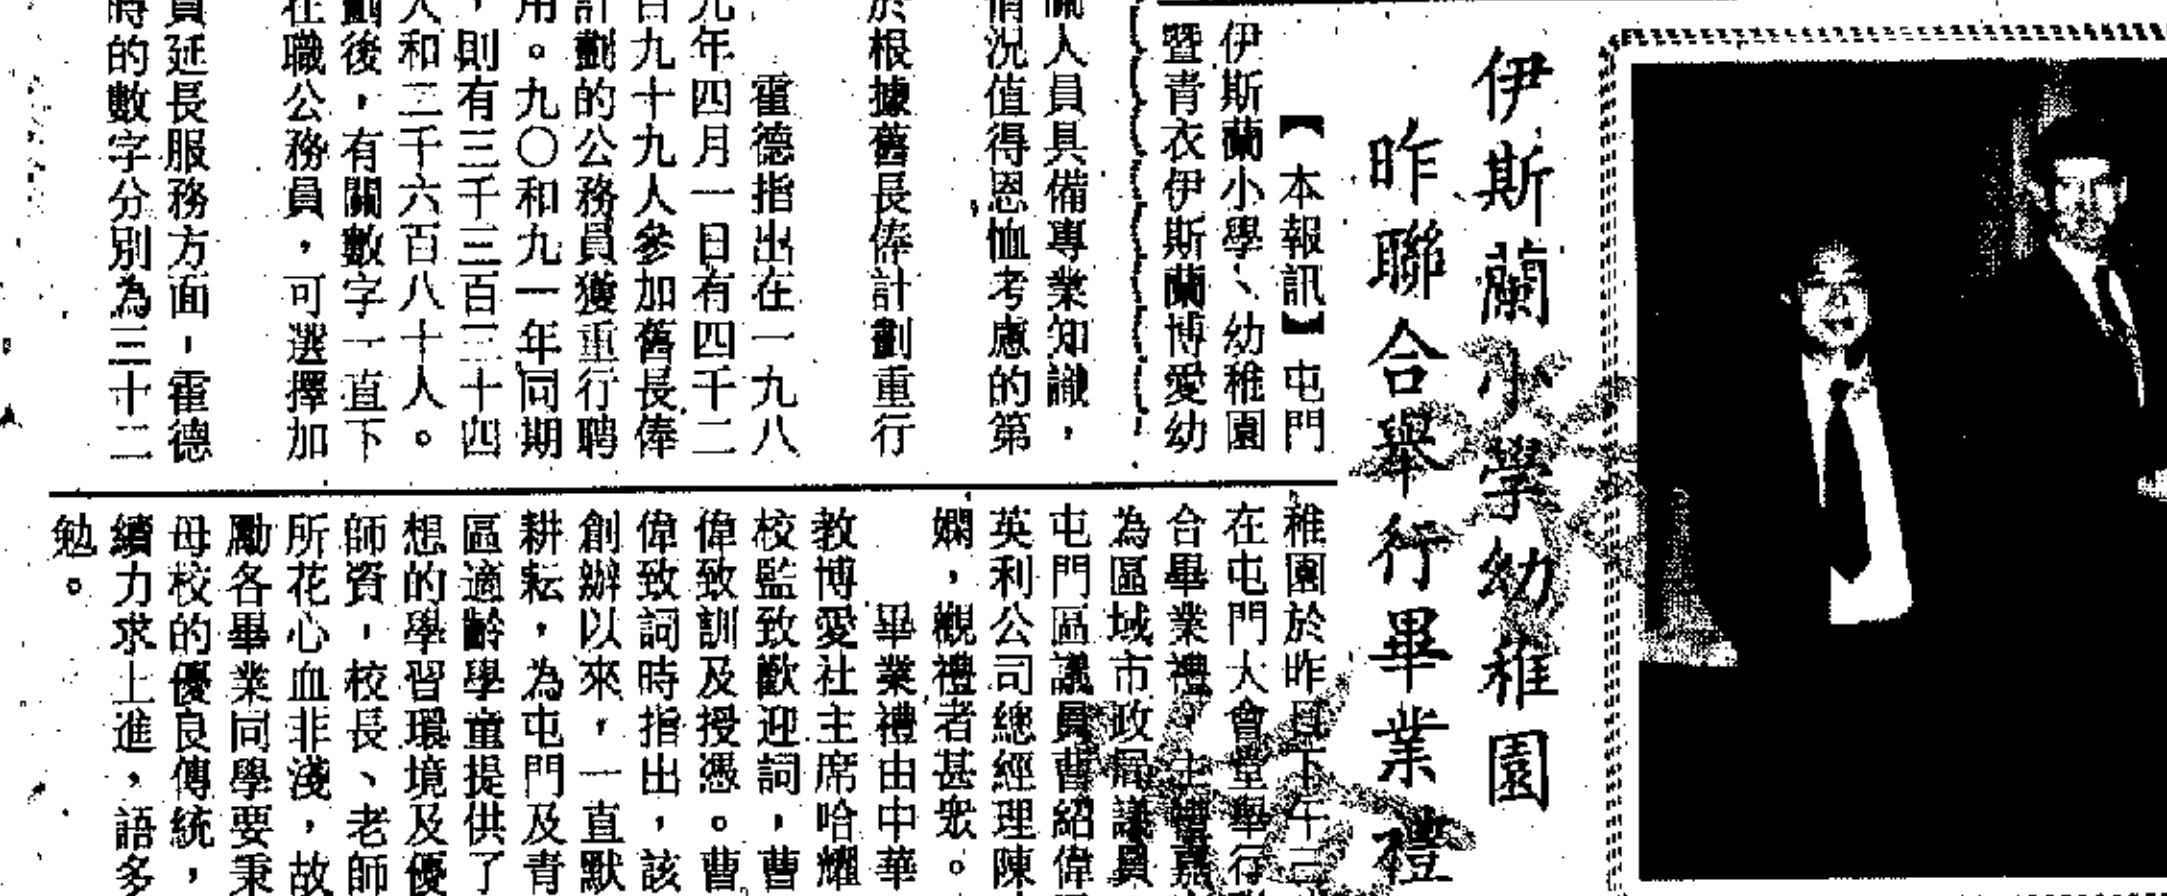 伊斯蘭小學幼稚園
昨聯合舉行畢業禮
【本報訊】屯門
伊斯蘭小學、幼稚園
暨青衣伊斯蘭博愛幼
稚園於昨日下午三
在屯門大會堂舉行聯
合畢業禮，主禮嘉
為區域市政局議員
屯門區議員曹紹偉
英利公司總經理陳
嫻，觀禮者甚眾。
畢業禮由中華
教博愛社主席哈耀
校監致歡迎詞，曹
偉致訓及授憑。曹
偉致詞時指出，該
創辦以來，一直默
耕耘，為屯門及青
區適齡學童提供了
想的學習環境及優
師資，校長、老師
所花心血非淺，故
勵各畢業同學要秉
母校的優良傳統，
續力求上進，語多
勉。
關人員具備專業知識，
情況值得恩恤考慮的第
於根據舊長俸計劃重行
霍德指出在一九八
九年四月一日有四千二
百九十九人參加舊長俸
計劃的公務員獲重行聘
用。九〇和九一年同期
，則有三千三百三十四
人和二千六百八十人。
劃後，有關數字一直下
在職公務員，可選擇加
員延長服務方面，霍德
時的數字分別為三十二